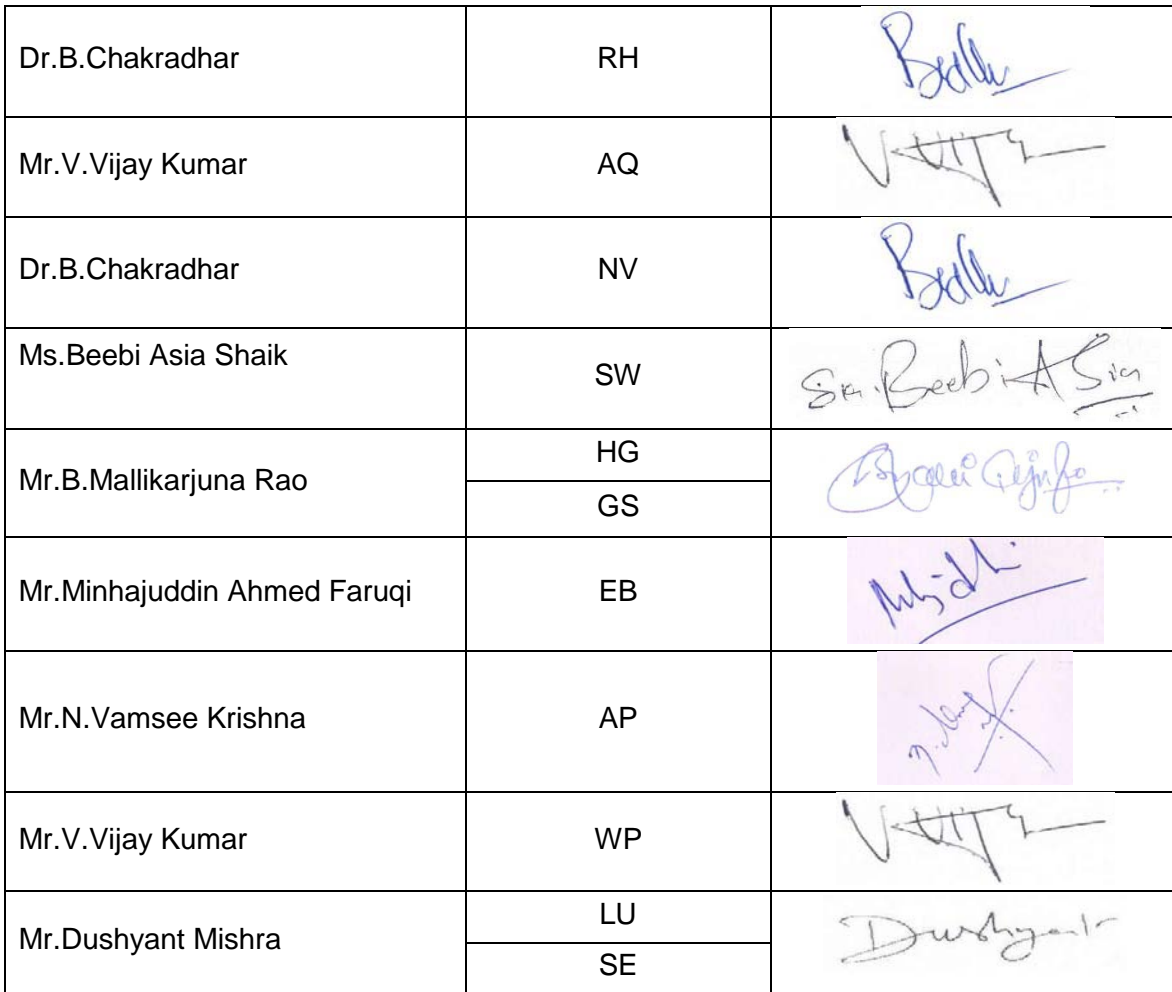 Dr.B.Chakradhar RH
Mr.V.Vijay Kumar AQ
Dr.B.Chakradhar NV
Ms.Beebi Asia Shaik SW Sk.Beebi ASia
Mr.B.Mallikarjuna Rao HG
GS
Mr.Minhajuddin Ahmed Faruqi EB
Mr.N.Vamsee Krishna AP
Mr.V.Vijay Kumar WP
Mr.Dushyant Mishra LU Dushyant
SE